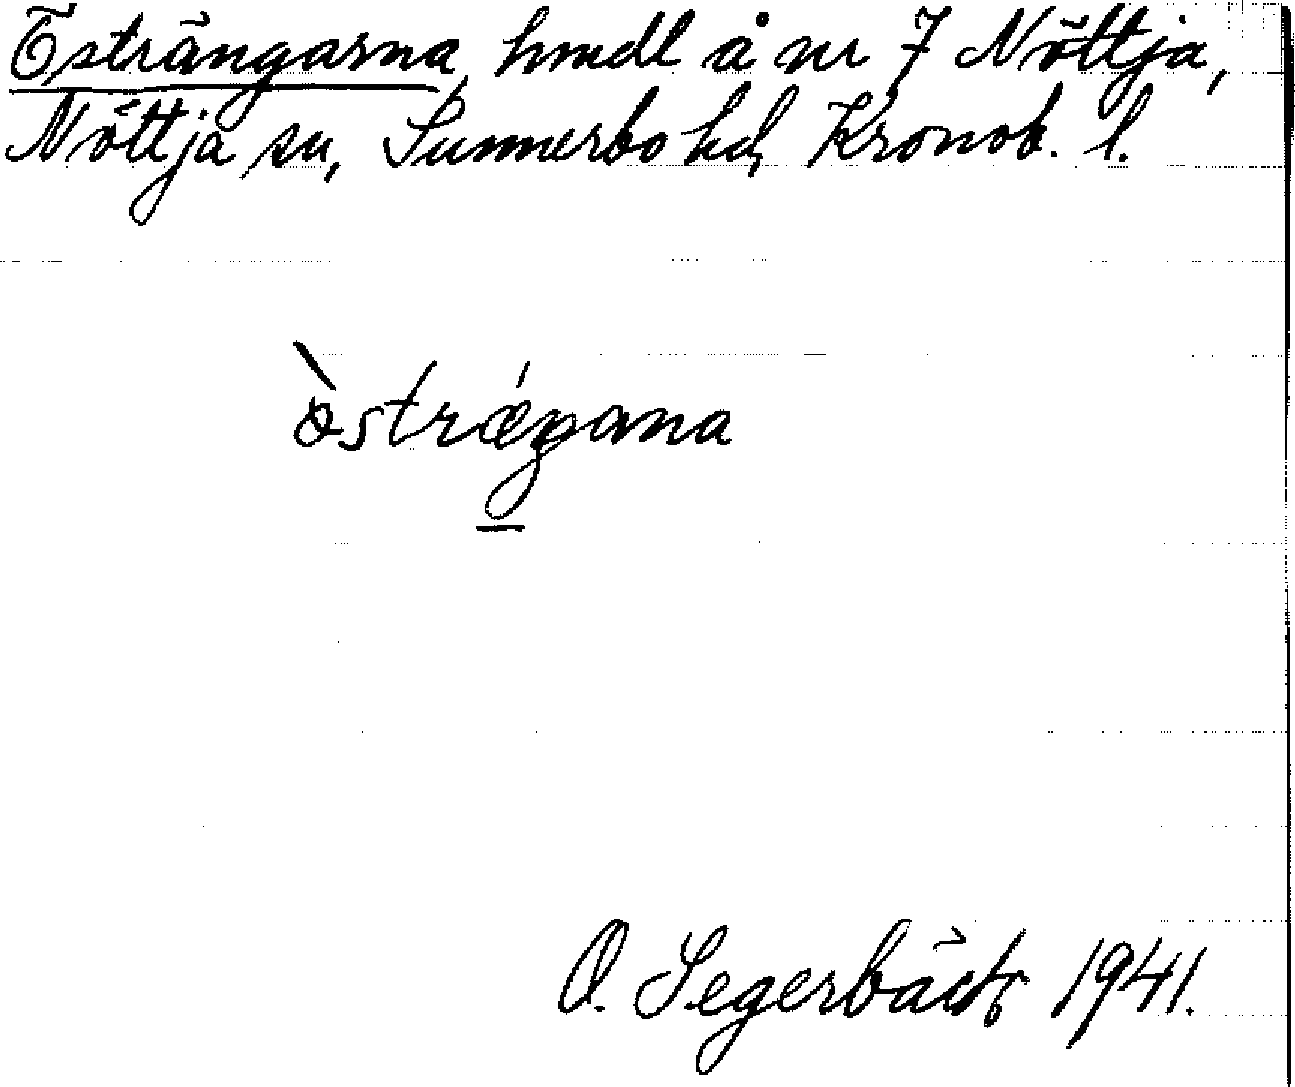 Östrängarna, hmdl å nr 7 Nöttja,
Nöttja sn, Sunnerbo hd, Kronob. l.
òstrǽgana
O. Segerbäck 1941.